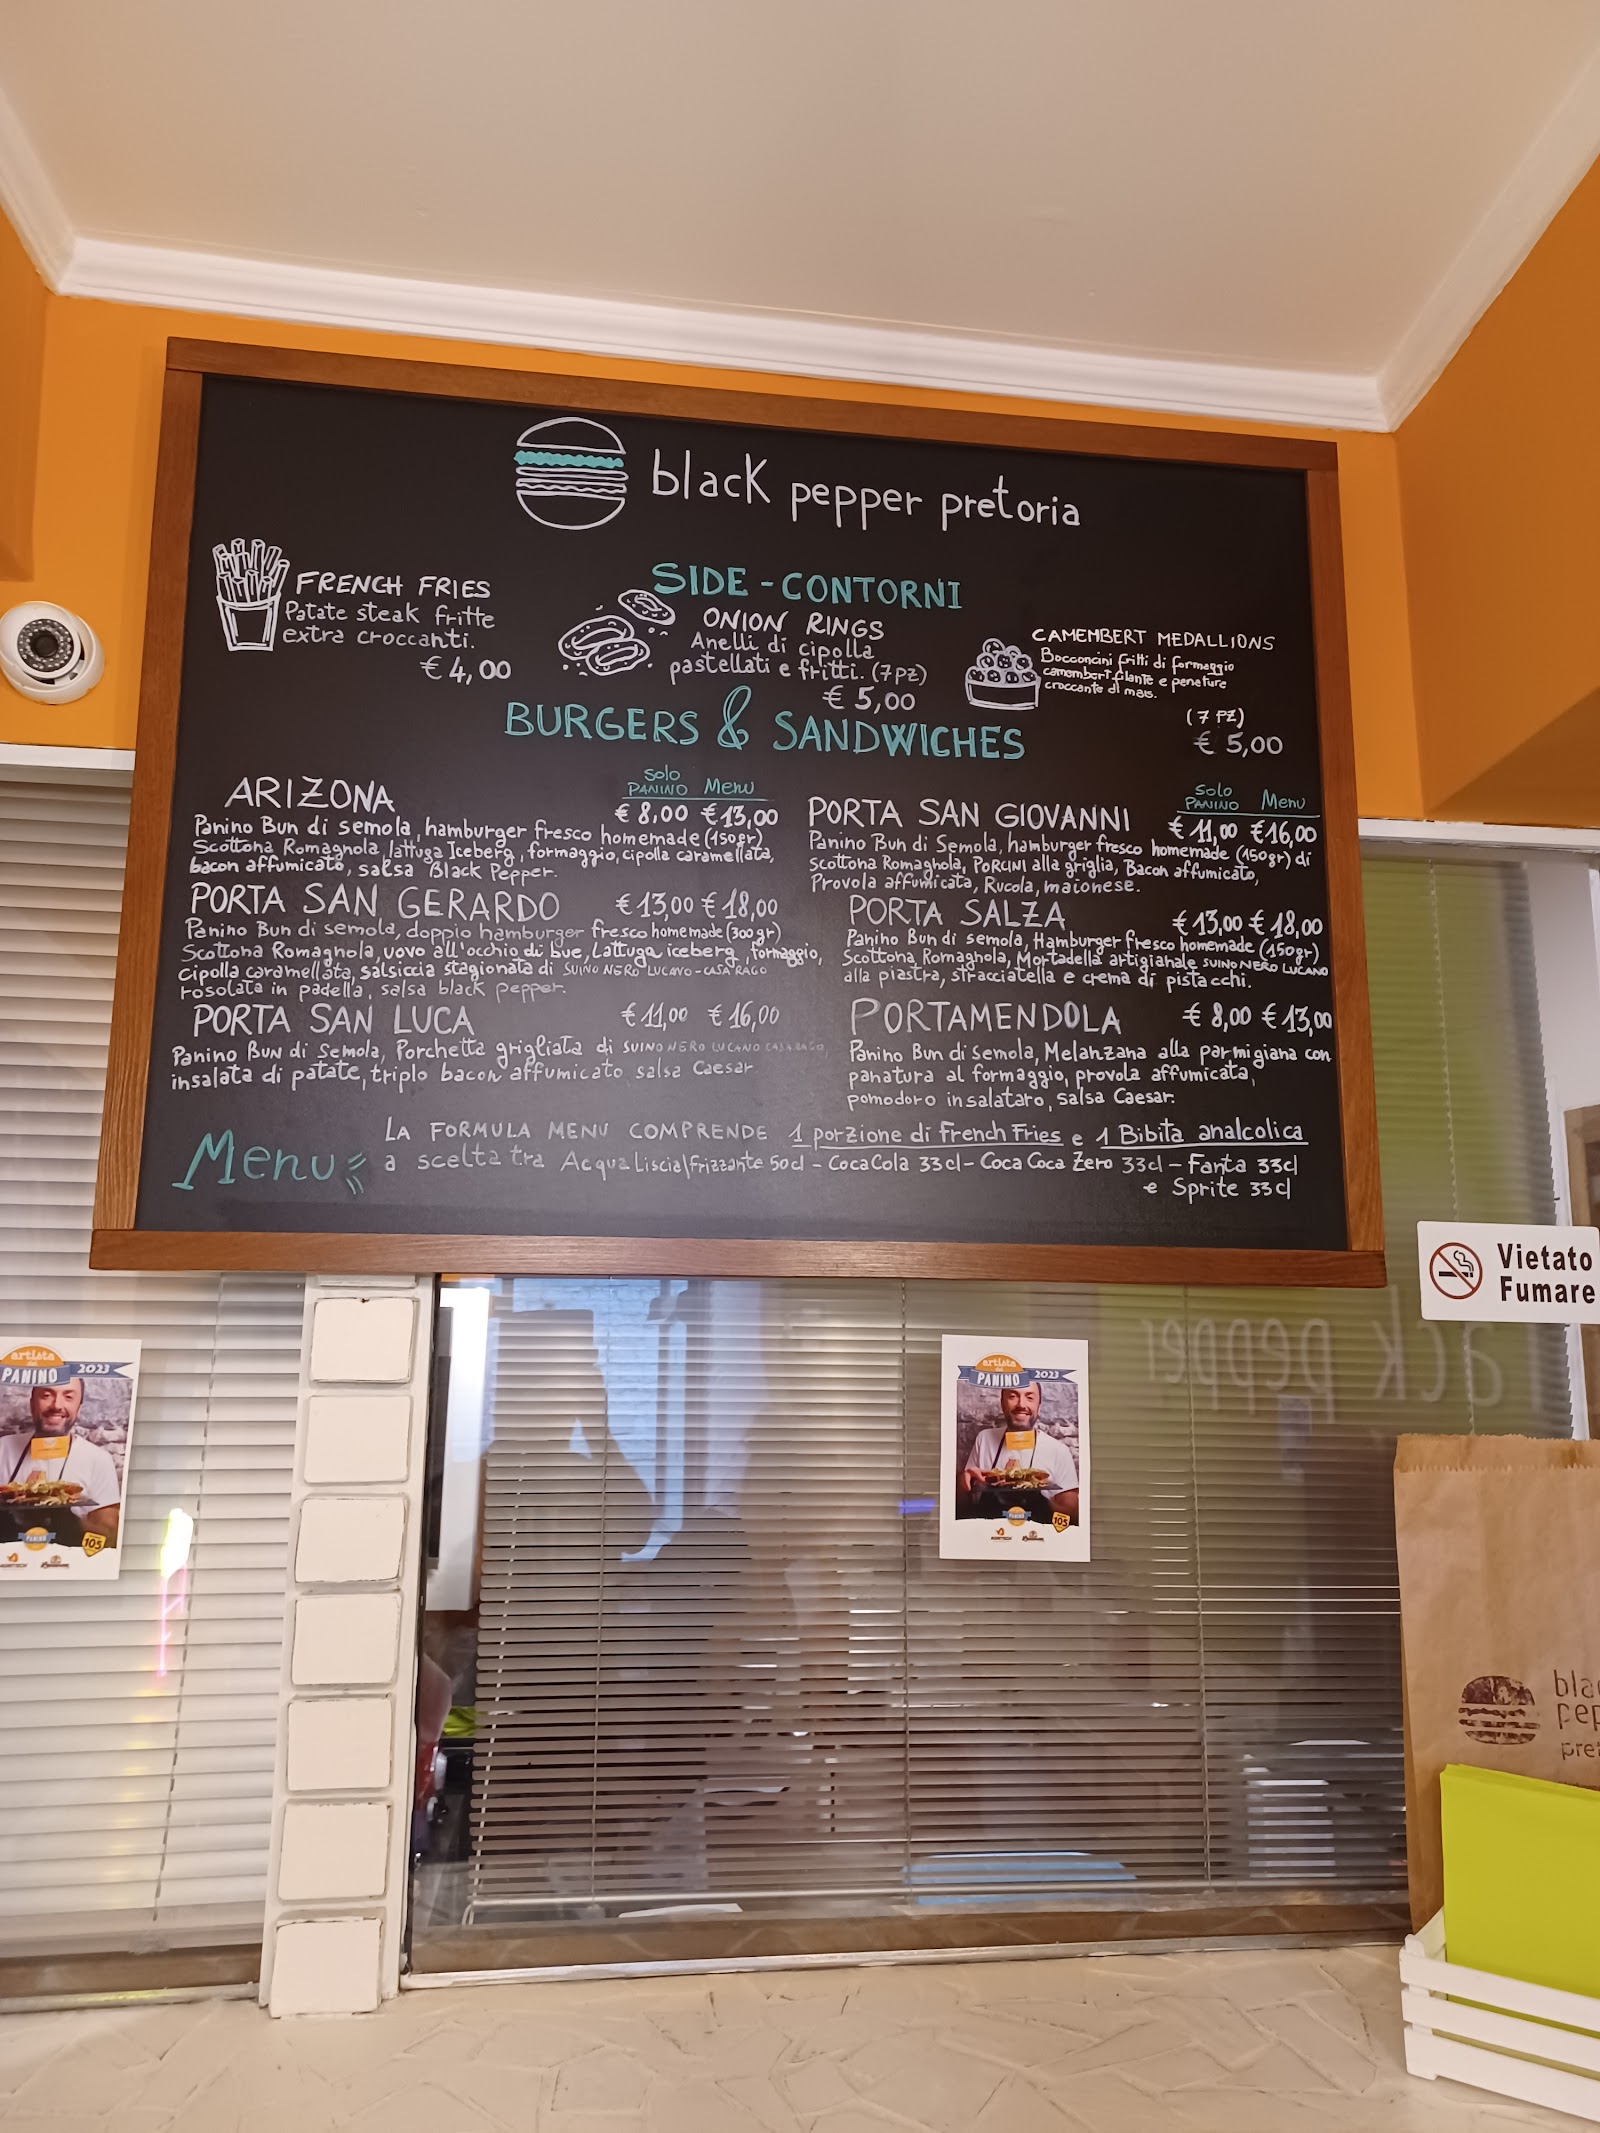 black pepper pretoria
SIDE - CONTORNI
FRENCH FRIES
Patate steak fritte
extra croccanti.
€ 4,00
ONION RINGS
Anelli di cipolla
pastellati e fritti. (7PZ)
€ 5,00
CAMEMBERT MEDALLIONS
Bocconcini fritti di formaggio
camembert filante e panature
croccante di mais.
(7 PZ)
€ 5,00
BURGERS & SANDWICHES
Solo
PANINO Menu
ARIZONA € 8,00 €13,00
Panino Bun di semola, hamburger fresco homemade (150gr)
Scottona Romagnola, lattuga Iceberg, formaggio, cipolla caramellata,
bacon affumicato, salsa Black Pepper.
PORTA SAN GERARDO €13,00 €18,00
Panino Bun di semola, doppio hamburger fresco homemade (300gr)
Scottona Romagnola, uovo all'occhio di bue, Lattuga iceberg, formaggio,
cipolla caramellata, salsiccia stagionata di SUINO NERO LUCANO - CASA RAGO
rosolata in padella, salsa black pepper.
PORTA SAN LUCA €11,00 €16,00
Panino BUN di Semola, Porchetta grigliata di SUINO NERO LUCANO CASA RAGO,
insalata di patate, triplo bacon affumicato salsa Caesar
Solo
PANINO Menu
PORTA SAN GIOVANNI €11,00 €16,00
Panino Bun di Semola, hamburger fresco homemade (150gr) di
Scottona Romagnola, PORCINI alla griglia, Bacon affumicato,
Provola affumicata, Rucola, maionese.
PORTA SALZA €13,00 €18,00
Panino Bun di semola, Hamburger fresco homemade (150gr)
Scottona Romagnola, Mortadella artigianale SUINO NERO LUCANO
alla piastra, stracciatella e crema di pistacchi.
PORTAMENDOLA € 8,00 €13,00
Panino Bun di semola, Melanzana alla parmigiana con
panatura al formaggio, provola affumicata,
pomodoro insalataro, salsa Caesar.
Menu
LA FORMULA MENU COMPRENDE 1 porzione di French Fries e 1 Bibita analcolica
a scelta tra Acqua Liscia/frizzante 50cl - CocaCola 33cl - Coca Coca Zero 33cl - Fanta 33cl
e Sprite 33cl
Vietato
Fumare
artista
del
PANINO 2023
PANINO
105
artista
del
PANINO 2023
PANINO
105
ack pepper
blac
pep
pre